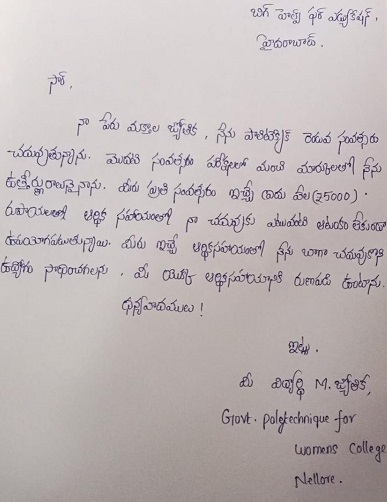 బిగ్ హెల్ప్ ఫర్ ఎడ్యుకేషన్,
హైదరాబాద్.
సార్,
నా పేరు మక్కాల జ్యోతిక, నేను పాలిటెక్నిక్ రెండవ సంవత్సరం
చదువుతున్నాను. మొదటి సంవత్సరం పరీక్షలలో మంచి మార్కులతో నేను
ఉత్తీర్ణురాలునైనాను. మీరు ప్రతి సంవత్సరం ఇచ్చే ఐదు వేల (₹5000).
రుపాయలతో ఆర్థిక సహాయంతో నా చదువుకు ఎటువంటి ఆటంకం లేకుండా
ఉపయోగపడుతున్నాయి. మీరు ఇచ్చే ఆర్థికసహాయంతో నేను బాగా చదువుకొని
ఉద్యోగం సాధించగలను. మీ యొక్క ఆర్థికసహాయానికి రుణపడి ఉంటాను.
ధన్యవాదములు!
ఇట్లు.
మీ విద్యార్థి M. జ్యోతిక,
Govt. polytechnique for
womens College
Nellore.